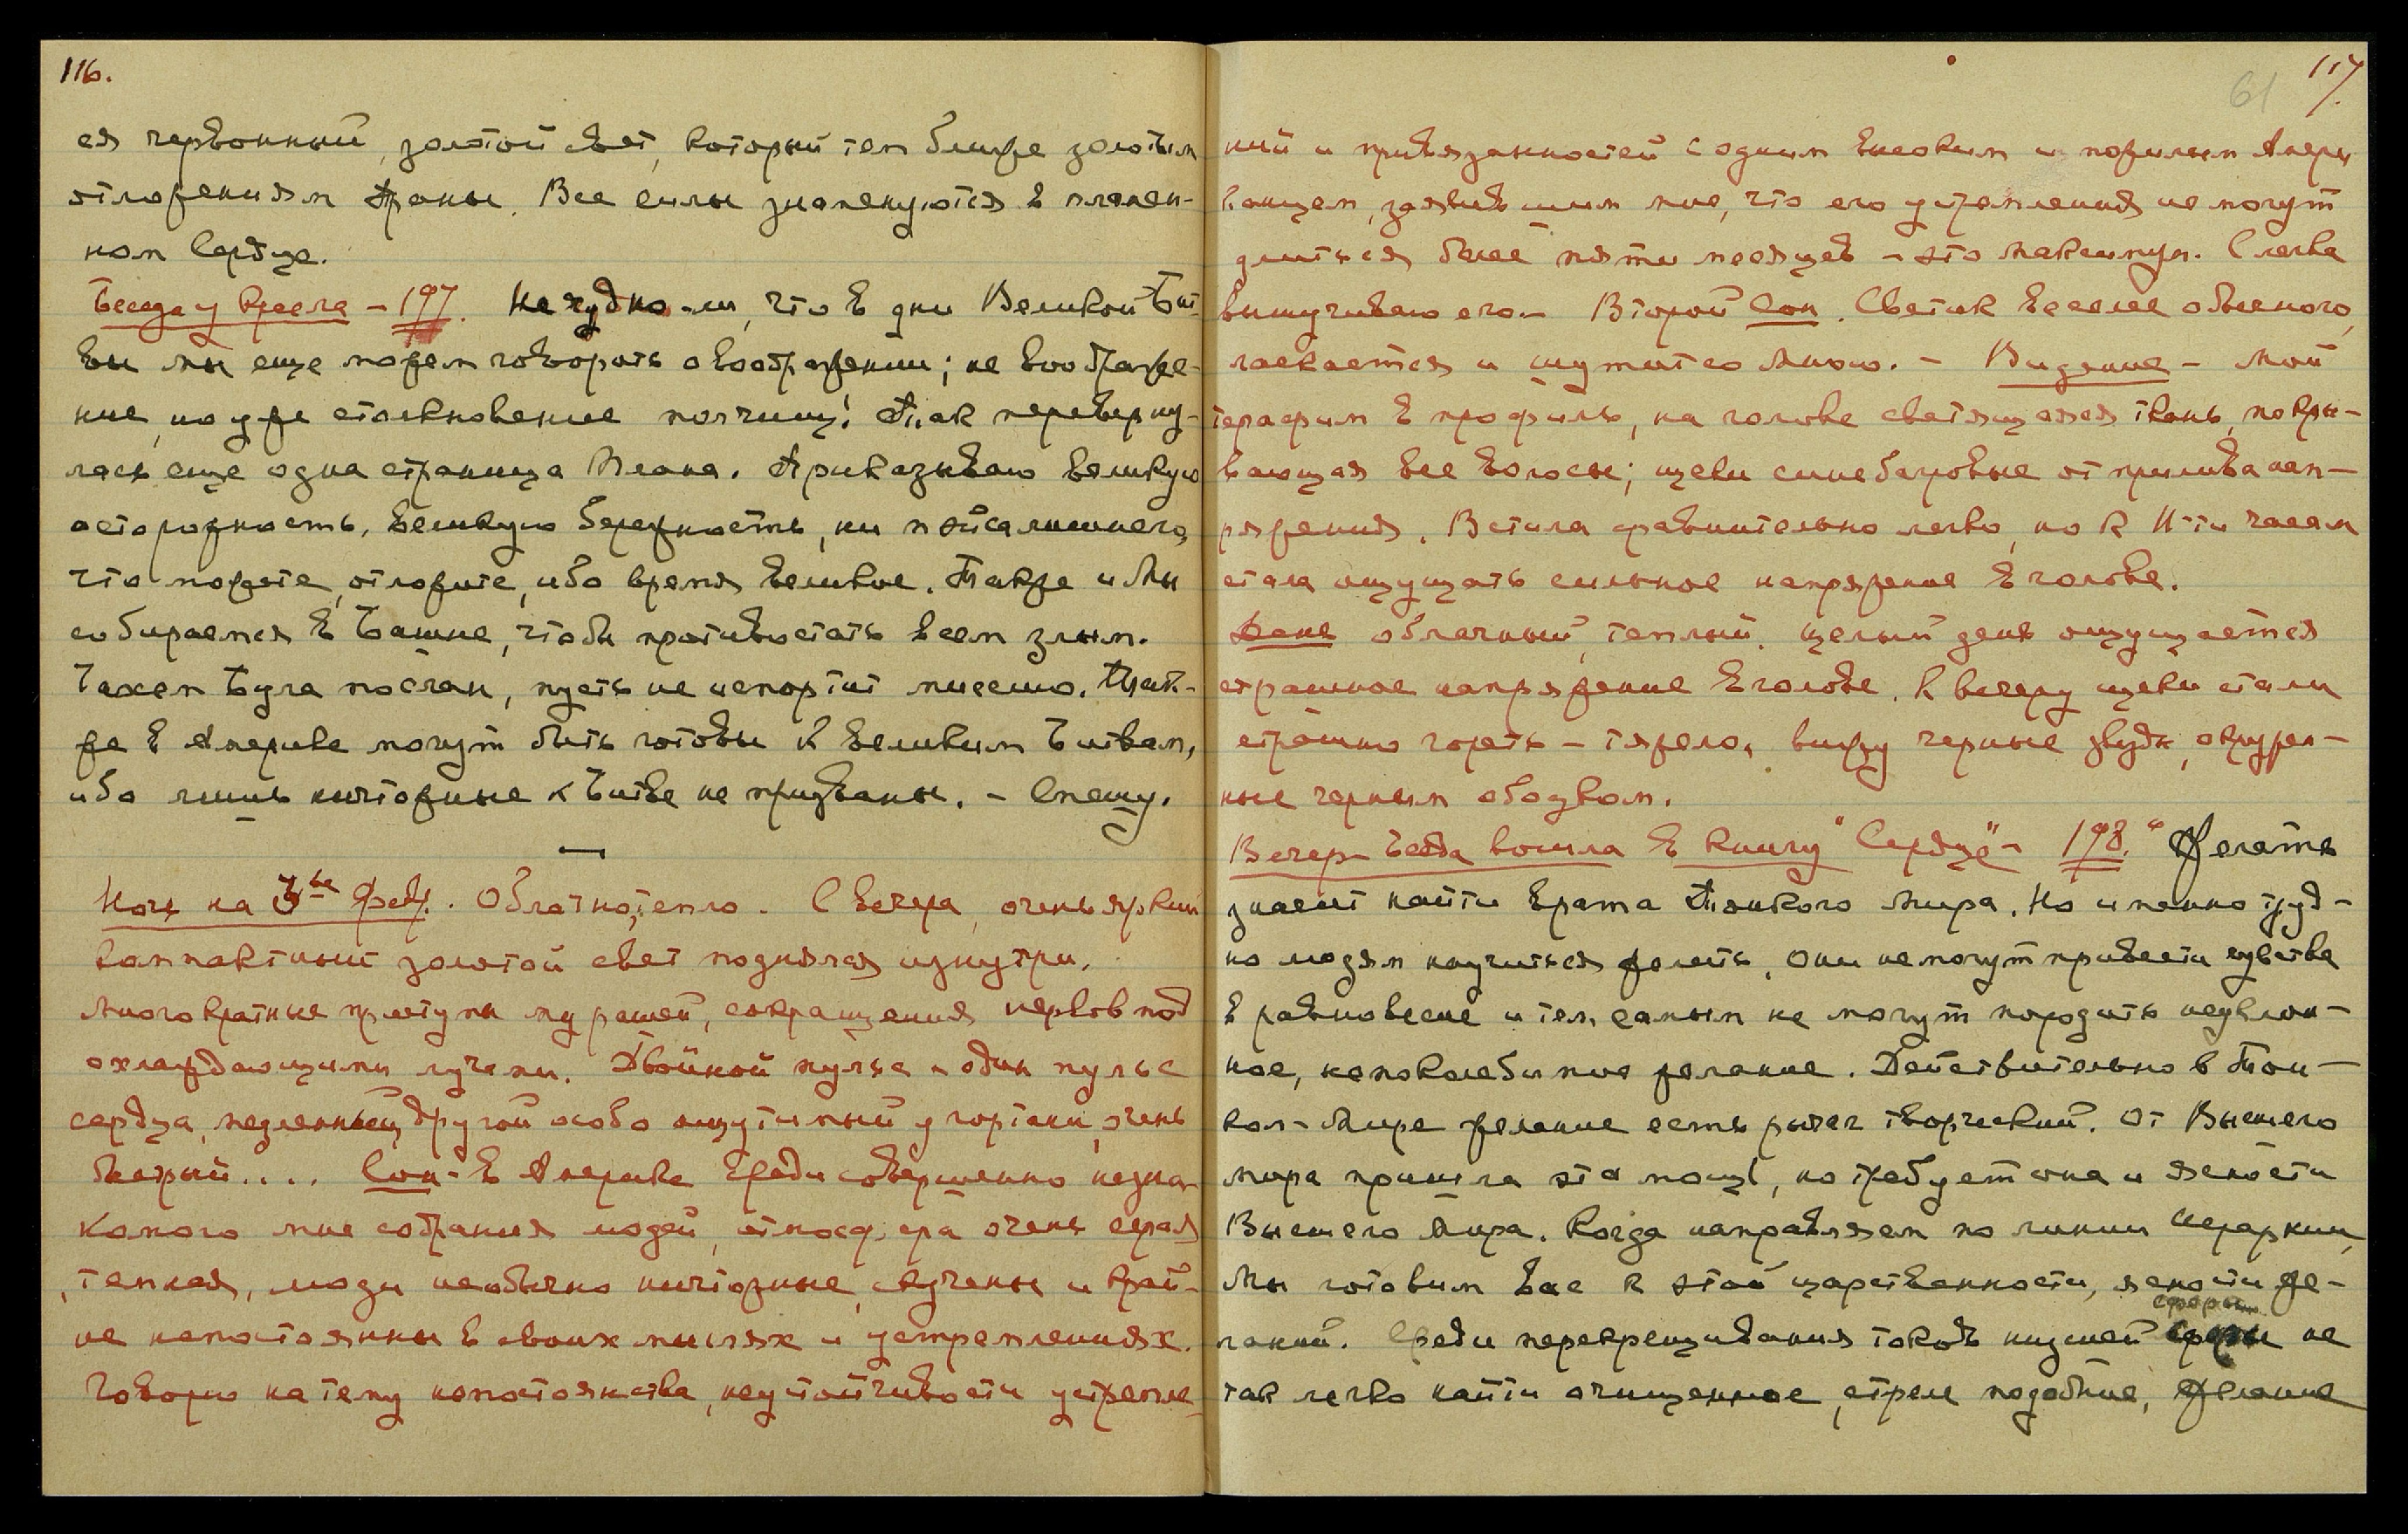 116.
ся червонный, золотой свет, который тем ближе золотым
отложениям Праны. Все силы знаменуются в пламен-
ном Сердце.
Беседа у Кресла - 197. Не чудно-ли, что в дни Великой Бит-
вы мы еще можем говорить о воображении; не воображе-
ние, но уже столкновение мощи! Так переверну-
лась еще одна страница Плана. Приказываю великую
осторожность, великую бережность, ни пятса лишнего,
что можете, отложите, ибо время великое. Также и Мы
собираемся в Башне, чтобы противостать всем злым.
Яхем Була послан, пусть не испортит письмо. Так-
же в Америке могут быть готовы к великим Битвам,
ибо лишь ничтожные к Битве не призваны. - Спешу.
Ночь на 3ье Февр. Облачно, тепло. С вечера, очень яркий
компактный золотой свет поднялся изнутри.
Многократные приступы мурашей, сокращения нервов под
охлаждающими лучами. Двойной пульс и один пульс
сердца, медленный, другой особо ощутимый у гортани, очень
быстрый.... Сон - в Америке среди совершенно незна-
комого мне собрания людей, атмосфера очень серая,
темная, люди необычно ничтожные, скучены и край-
не непостоянны в своих мыслях и устремлениях.
Говорю на тему непостоянства, неустойчивости устремле-
117.
61
ний и привязанностей с одним высоким и пожилым Амери-
канцем, заявившим мне, что его устремления не могут
длиться более пяти месяцев - это максимум. Слегка
вышучиваю его. - Второй Сон. Светик веселее обычного,
ласкается и шутит со Мною. - Видение - Мой
терафим в профиль, на голове светящаяся ткань, покры-
вающая все волосы; щеки синебагровые от прилива нап-
ряжения. Встала сравнительно легко, но к 11-ти часам
стала ощущать сильное напряжение в голове.
День облачный, теплый. Целый день ощущается
страшное напряжение в голове. К вечеру щеки стали
страшно гореть - тяжело, вижу черные звезды, окружен-
ные черным ободком.
Вечер - Беседа вошла в книгу "Сердце" - 198. "Желать
значит найти врата Тонкого Мира. Но именно труд-
но людям научиться желать. Они не могут привести чувства
в равновесие и тем самым не могут породить неуклон-
ное, непоколебимое желание. Действительно в Тон-
ком Мире желание есть рычаг творческий. От Высшего
Мира пришла эта мощь, но требует она и ясности
Высшего Мира. Когда направляем по линии Иерархии,
Мы готовим вас к этой царственности, ясности же-
ланий. Среди перекрещивания токов низшей сферы не
так легко найти очищенное, стреле подобное, желание